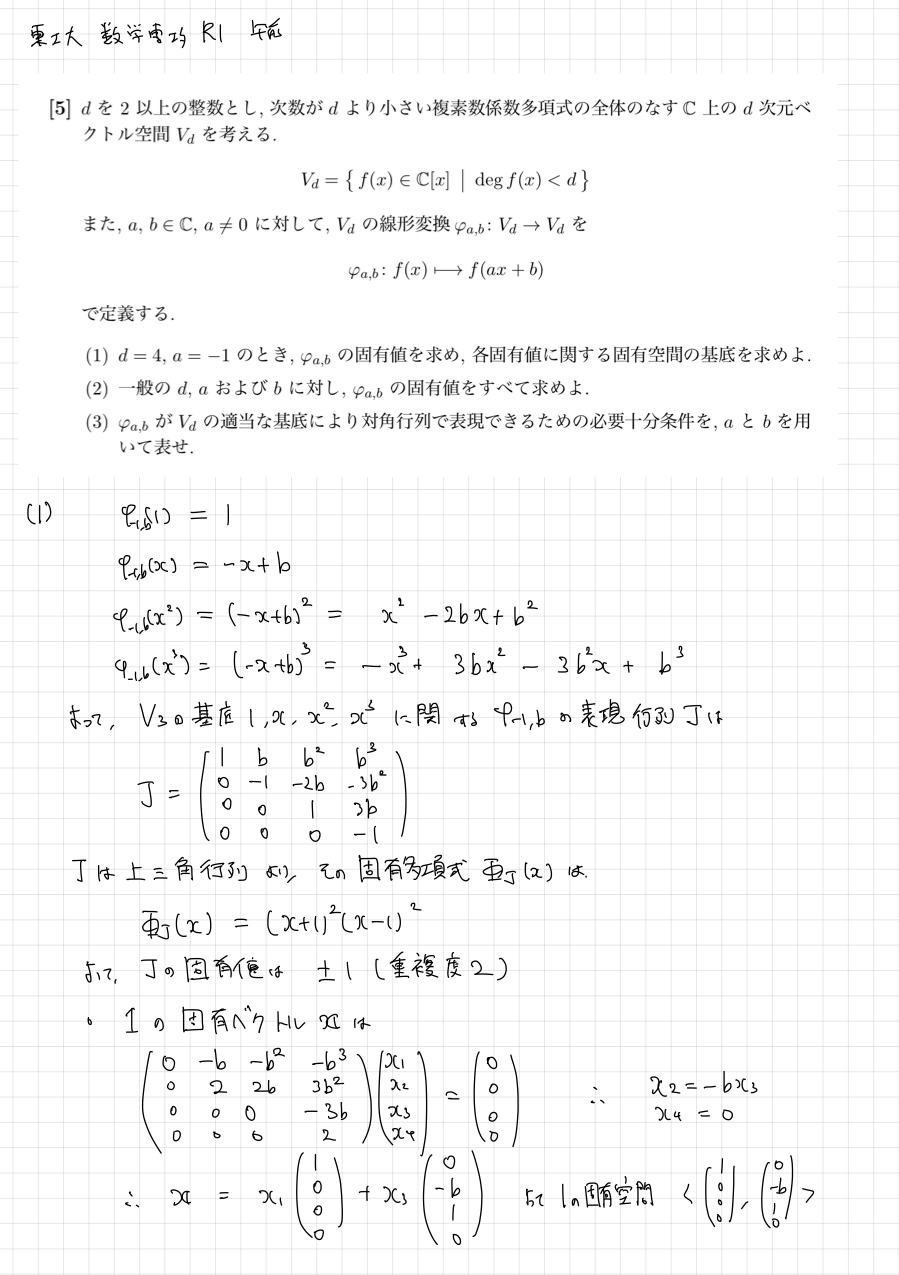 東工大 数学専攻 R1 午前
[5] d を 2 以上の整数とし, 次数が d より小さい複素数係数多項式の全体のなす ℂ 上の d 次元ベ
クトル空間 V_d を考える.
V_d = { f(x) ∈ ℂ[x] | deg f(x) < d }
また, a, b ∈ ℂ, a ≠ 0 に対して, V_d の線形変換 φ_{a,b}: V_d → V_d を
φ_{a,b}: f(x) ⟼ f(ax + b)
で定義する.
(1) d = 4, a = −1 のとき, φ_{a,b} の固有値を求め, 各固有値に関する固有空間の基底を求めよ.
(2) 一般の d, a および b に対し, φ_{a,b} の固有値をすべて求めよ.
(3) φ_{a,b} が V_d の適当な基底により対角行列で表現できるための必要十分条件を, a と b を用
いて表せ.
(1) φ_{-1,b}(1) = 1
φ_{-1,b}(x) = -x+b
φ_{-1,b}(x²) = (-x+b)² = x² - 2bx + b²
φ_{-1,b}(x³) = (-x+b)³ = -x³ + 3bx² - 3b²x + b³
よって, V₃の基底 1, x, x², x³ に関する φ_{-1,b} の表現行列 J は
J = ( 1 b b² b³
0 -1 -2b -3b²
0 0 1 3b
0 0 0 -1 )
J は上三角行列より, その固有多項式 Φ_J(x) は
Φ_J(x) = (x+1)²(x-1)²
よって, Jの固有値は ±1 (重複度2)
• 1 の固有ベクトル x は
( 0 -b -b² -b³ ) ( x₁ ) ( 0 )
( 0 2 2b 3b² ) ( x₂ ) = ( 0 ) ∴ x₂ = -bx₃
( 0 0 0 -3b ) ( x₃ ) ( 0 ) x₄ = 0
( 0 0 0 2 ) ( x₄ ) ( 0 )
∴ x = x₁ ( 1 0 0 0 ) + x₃ ( 0 -b 1 0 ) よって 1の固有空間 < ( 1 0 0 0 ), ( 0 -b 1 0 ) >